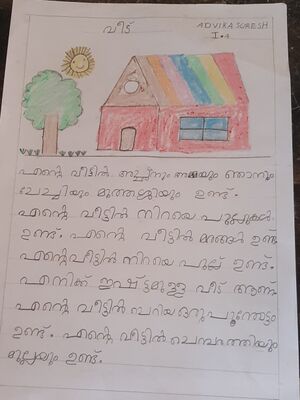 വീട്
ADVIKA SURESH
I-A
എന്റെ വീട്ടിൽ അച്ഛനും അമ്മയും ഞാനും
ചേച്ചിയും മുത്തശ്ശിയും ഉണ്ട്.
എന്റെ വീട്ടിൽ നിറയെ പൂമ്പാറ്റകൾ
ഉണ്ട്. എന്റെ വീട്ടിൽ മരങ്ങൾ ഉണ്ട്
എന്റെവീട്ടിൽ നിറയെ പുല്ല് ഉണ്ട്.
എനിക്ക് ഇഷ്ട്ടമുള്ള വീട് ആണ്
എന്റെ വീട്ടിൽ ചെറിയ ഒരു പൂന്തോട്ടം
ഉണ്ട്. എന്റെ വീട്ടിൽ ചെമ്പരത്തിയും
മുല്ലയും ഉണ്ട്.